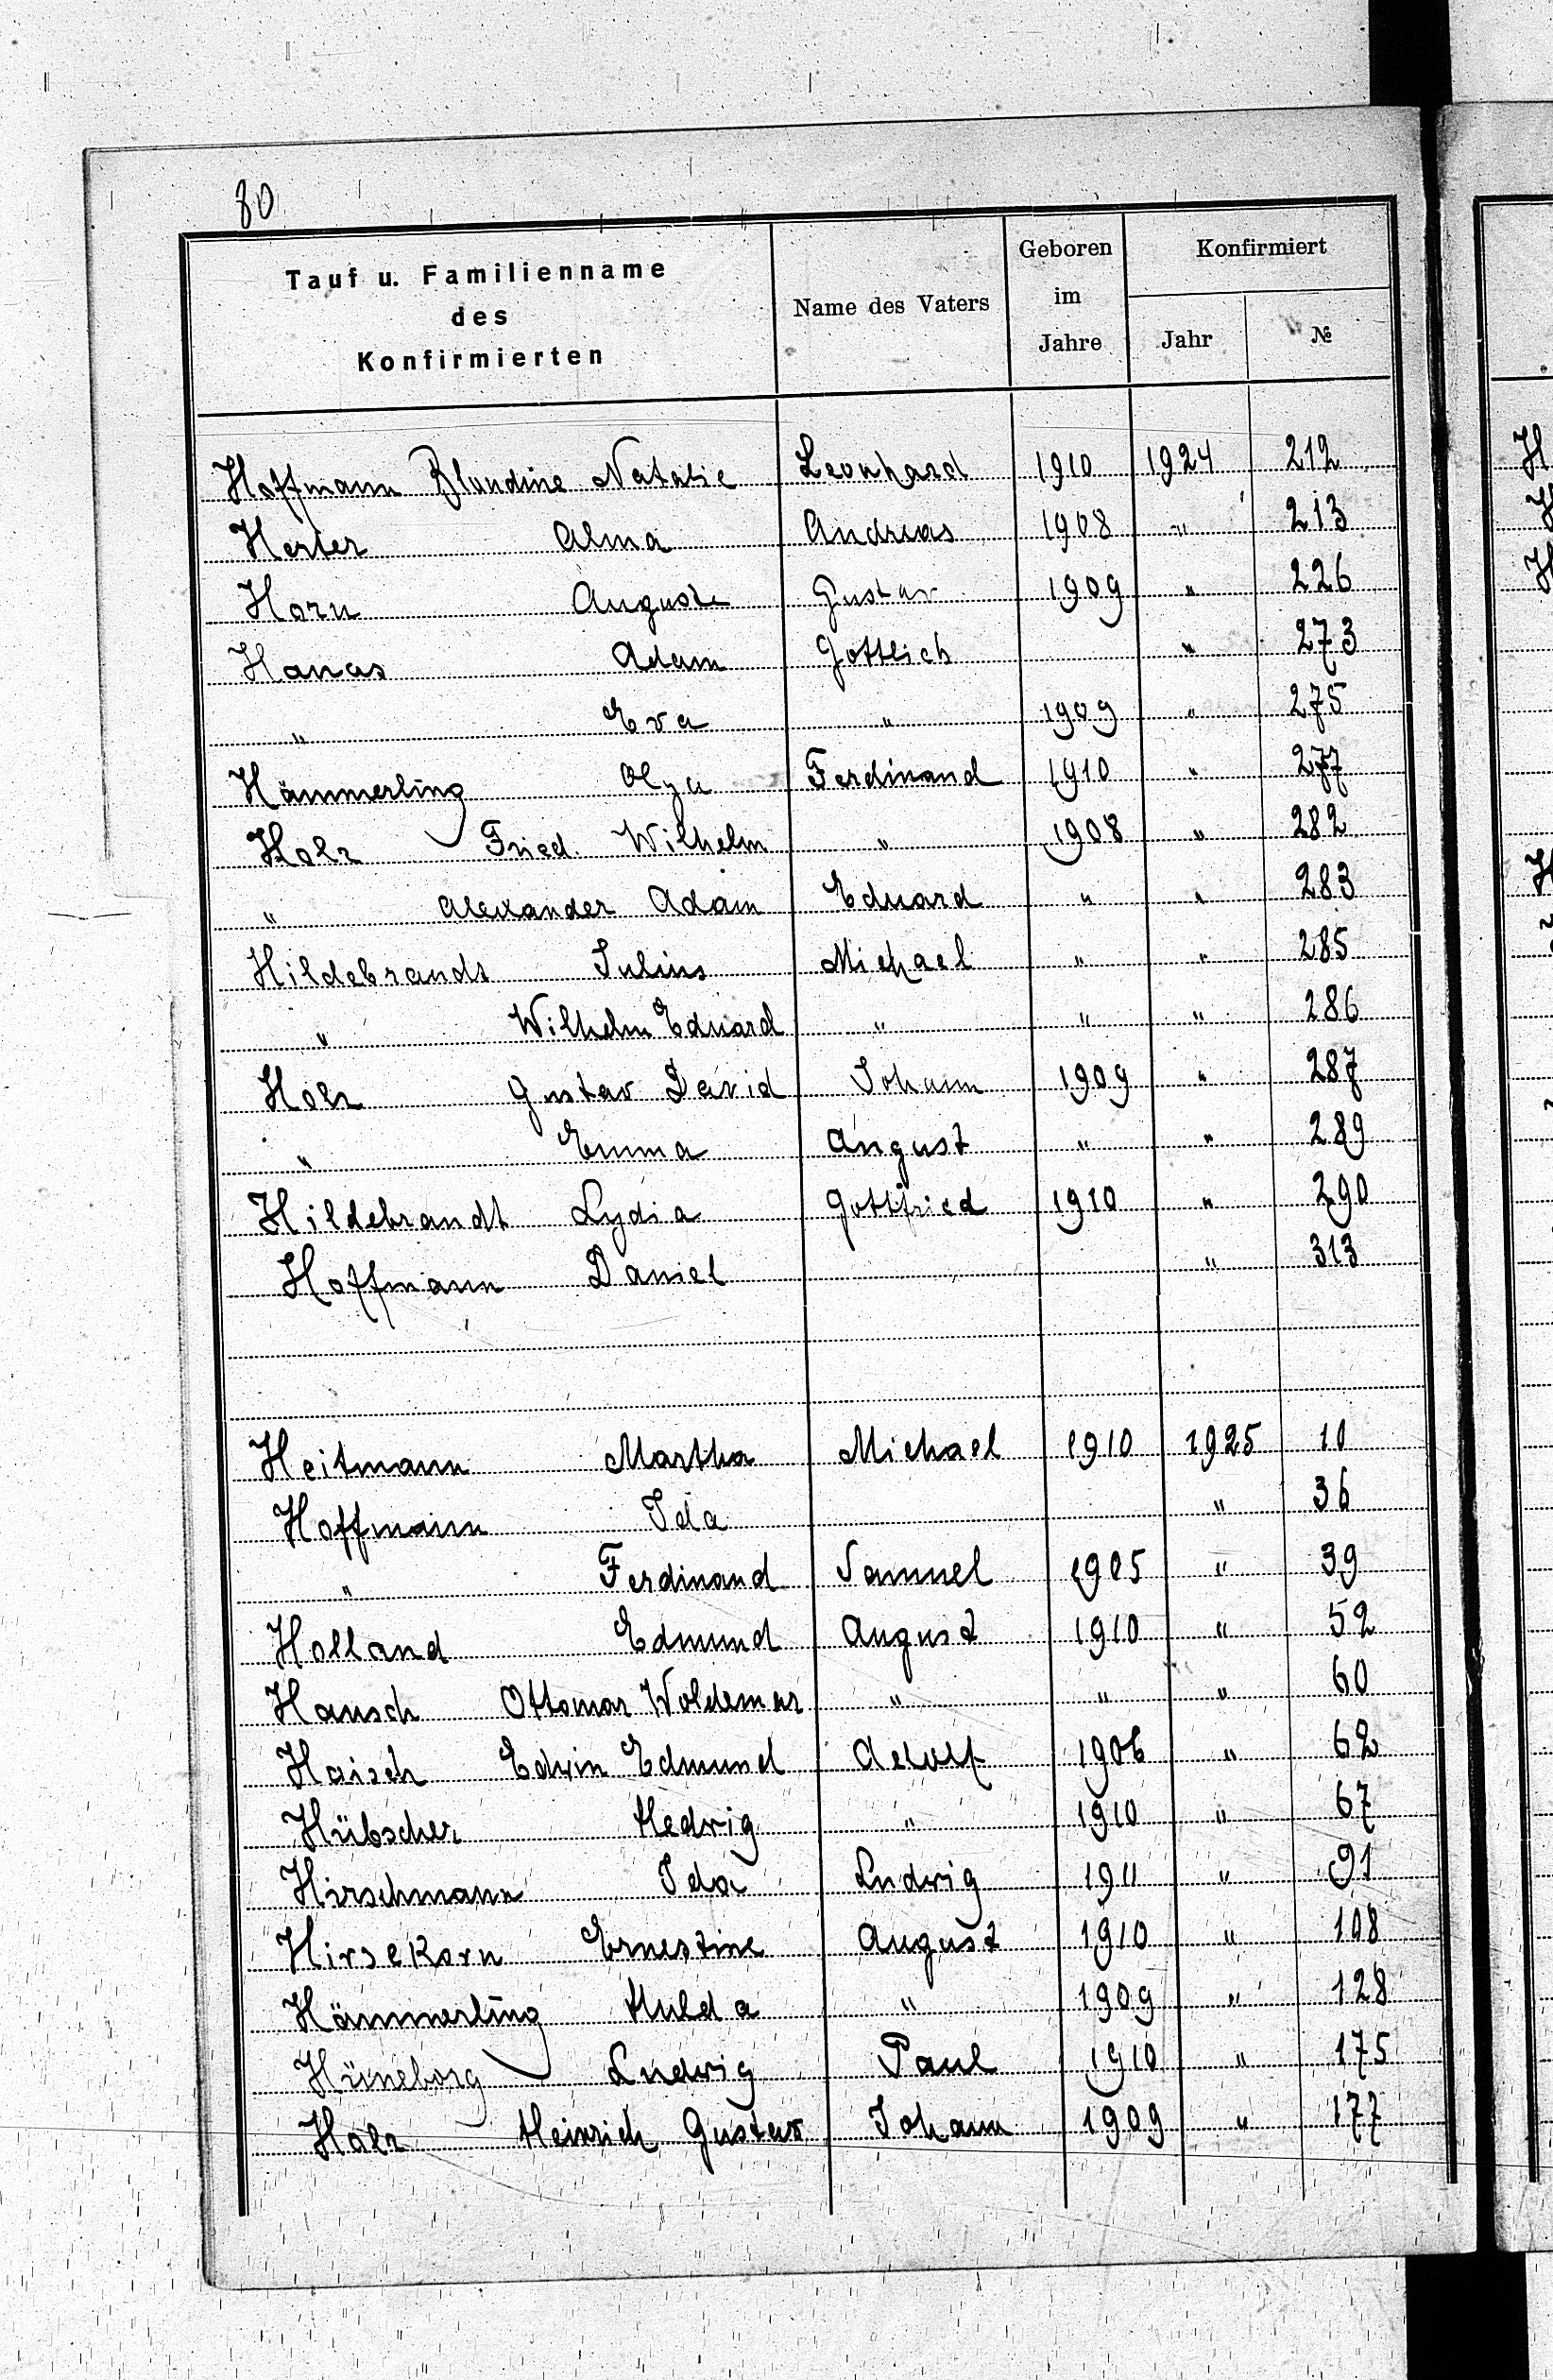 80
Tauf u. Familienname des Konfirmierten | Name des Vaters | Geboren im Jahre | Konfirmiert Jahr | №
Hoffmann Blondine Natalie Leonhard 1910 1924 212
Herter Alma Andreas 1908 " 213
Horn Auguste Gustav 1909 " 226
Hanas Adam Gottlieb " 273
" Eva " 1909 " 275
Hämmerling Olga Ferdinand 1910 " 277
Holz Fried. Wilhelm " 1908 " 282
" Alexander Adam Eduard " " 283
Hildebrandt Julius Michael " " 285
" Wilhelm Eduard " " " 286
Holz Gustav David Johann 1909 " 287
" Emma August " " 289
Hildebrandt Lydia Gottfried 1910 " 290
Hoffmann Daniel " 313
Heitmann Martha Michael 1910 1925 10
Hoffmann Ida " 36
" Ferdinand Samuel 1905 " 39
Holland Edmund August 1910 " 52
Hansch Ottomar Woldemar " " " 60
Haisch Edwin Edmund Adolf 1906 " 62
Hübscher Hedwig " 1910 " 67
Hirschmann Ida Ludwig 1911 " 91
Hirsekorn Ernestine August 1910 " 108
Hämmerling Hulda " 1909 " 128
Hüneborg Ludwig Paul 1910 " 175
Holz Heinrich Gustav Johann 1909 " 177